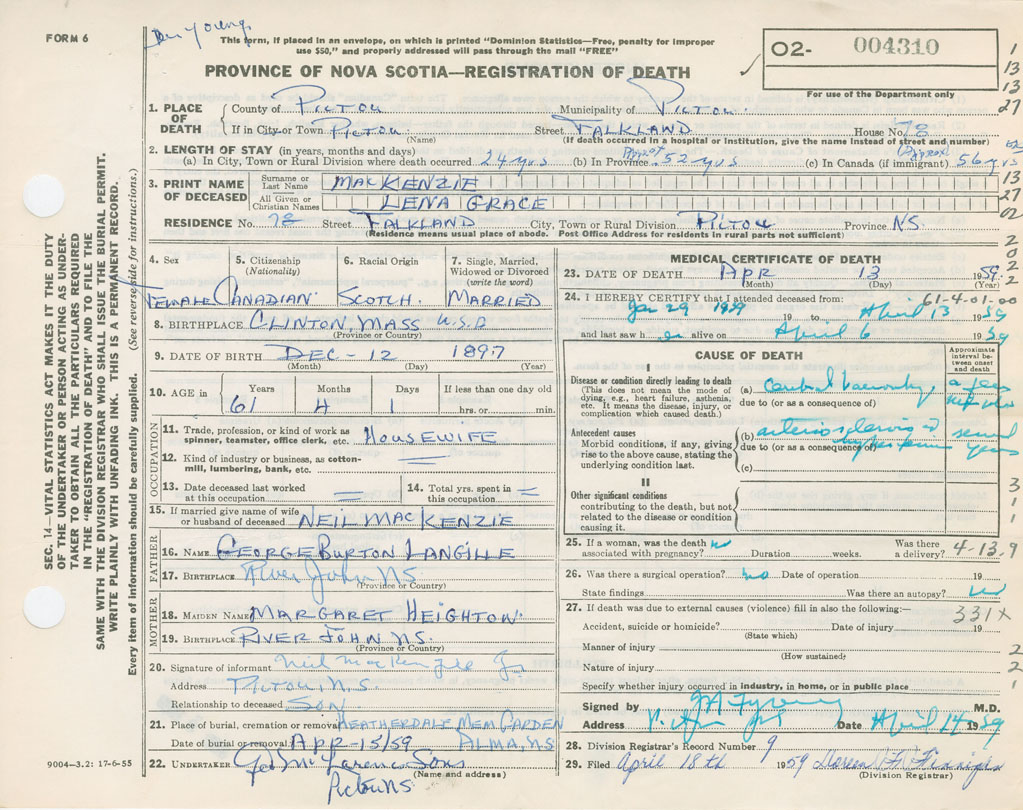 FORM 6
This form, if placed in an envelope, on which is printed "Dominion Statistics—Free, penalty for improper
use $50," and properly addressed will pass through the mail "FREE"
PROVINCE OF NOVA SCOTIA—REGISTRATION OF DEATH
O2- 004310
For use of the Department only
1
13
13
27
02
13
27
02
2
0
2
2
1. PLACE OF DEATH
County of PICTOU Municipality of PICTOU
If in City or Town PICTOU Street FALKLAND House No. 78
(Name) (If death occurred in a hospital or institution, give the name instead of street and number)
2. LENGTH OF STAY (in years, months and days)
(a) In City, Town or Rural Division where death occurred 24 yrs (b) In Province Approx 52 yrs (c) In Canada (if immigrant) (Approx) 56 yrs
3. PRINT NAME OF DECEASED
Surname or Last Name MACKENZIE
All Given or Christian Names LENA GRACE
RESIDENCE No. 78 Street FALKLAND City, Town or Rural Division PICTOU Province NS
(Residence means usual place of abode. Post Office Address for residents in rural parts not sufficient)
4. Sex 5. Citizenship (Nationality) 6. Racial Origin 7. Single, Married, Widowed or Divorced (write the word)
FEMALE CANADIAN SCOTCH MARRIED
8. BIRTHPLACE CLINTON, MASS U.S.A
(Province or Country)
9. DATE OF BIRTH DEC - 12 1897
(Month) (Day) (Year)
10. AGE in Years Months Days If less than one day old
61 4 1 hrs. or min.
OCCUPATION
11. Trade, profession, or kind of work as spinner, teamster, office clerk, etc. HOUSEWIFE
12. Kind of industry or business, as cotton-mill, lumbering, bank, etc.
13. Date deceased last worked at this occupation
14. Total yrs. spent in this occupation
15. If married give name of wife or husband of deceased NEIL MACKENZIE
FATHER
16. NAME GEORGE BURTON LANGILLE
17. BIRTHPLACE River John NS
(Province or Country)
MOTHER
18. MAIDEN NAME MARGARET HEIGHTON
19. BIRTHPLACE RIVER JOHN NS.
(Province or Country)
20. Signature of informant Neil MacKenzie Jr
Address PICTOU, N.S.
Relationship to deceased SON
21. Place of burial, cremation or removal HEATHERDALE MEM GARDEN
Date of burial or removal APR-15/59 ALMA, NS
22. UNDERTAKER Sons
(Name and address)
Pictou NS
9004-3.2: 17-6-55
SEC. 14—VITAL STATISTICS ACT MAKES IT THE DUTY
OF THE UNDERTAKER OR PERSON ACTING AS UNDER-
TAKER TO OBTAIN ALL THE PARTICULARS REQUIRED
IN THE "REGISTRATION OF DEATH" AND TO FILE THE
SAME WITH THE DIVISION REGISTRAR WHO SHALL ISSUE THE BURIAL PERMIT.
WRITE PLAINLY WITH UNFADING INK. THIS IS A PERMANENT RECORD.
Every item of information should be carefully supplied. (See reverse side for instructions.)
MEDICAL CERTIFICATE OF DEATH
23. DATE OF DEATH APR 13 1959.
(Month) (Day)
24. I HEREBY CERTIFY that I attended deceased from: 61-4-01-00
Jan 29 1959 19 to April 13 1959
and last saw h er alive on April 6 1959
CAUSE OF DEATH
Approximate interval between onset and death
I
Disease or condition directly leading to death (This does not mean the mode of dying, e.g., heart failure, asthenia, etc. It means the disease, injury, or complication which caused death.)
(a) cerebral
due to (or as a consequence of) a few
Antecedent causes
Morbid conditions, if any, giving rise to the above cause, stating the underlying condition last.
(b) arteriosclerosis several years
due to (or as a consequence of) hypertension
(c)
II
Other significant conditions contributing to the death, but not related to the disease or condition causing it.
3
1
1
25. If a woman, was the death associated with pregnancy? no Duration weeks. Was there a delivery? 4-13.9
26. Was there a surgical operation? no Date of operation 19
State findings Was there an autopsy? no
27. If death was due to external causes (violence) fill in also the following:— 331X
Accident, suicide or homicide? Date of injury 19
(State which)
Manner of injury 2
(How sustained)
Nature of injury 2
Specify whether injury occurred in industry, in home, or in public place 1
Signed by M.D.
Address Date April 14 1959
28. Division Registrar's Record Number 9
29. Filed April 18th 1959 Doreen
(Division Registrar)